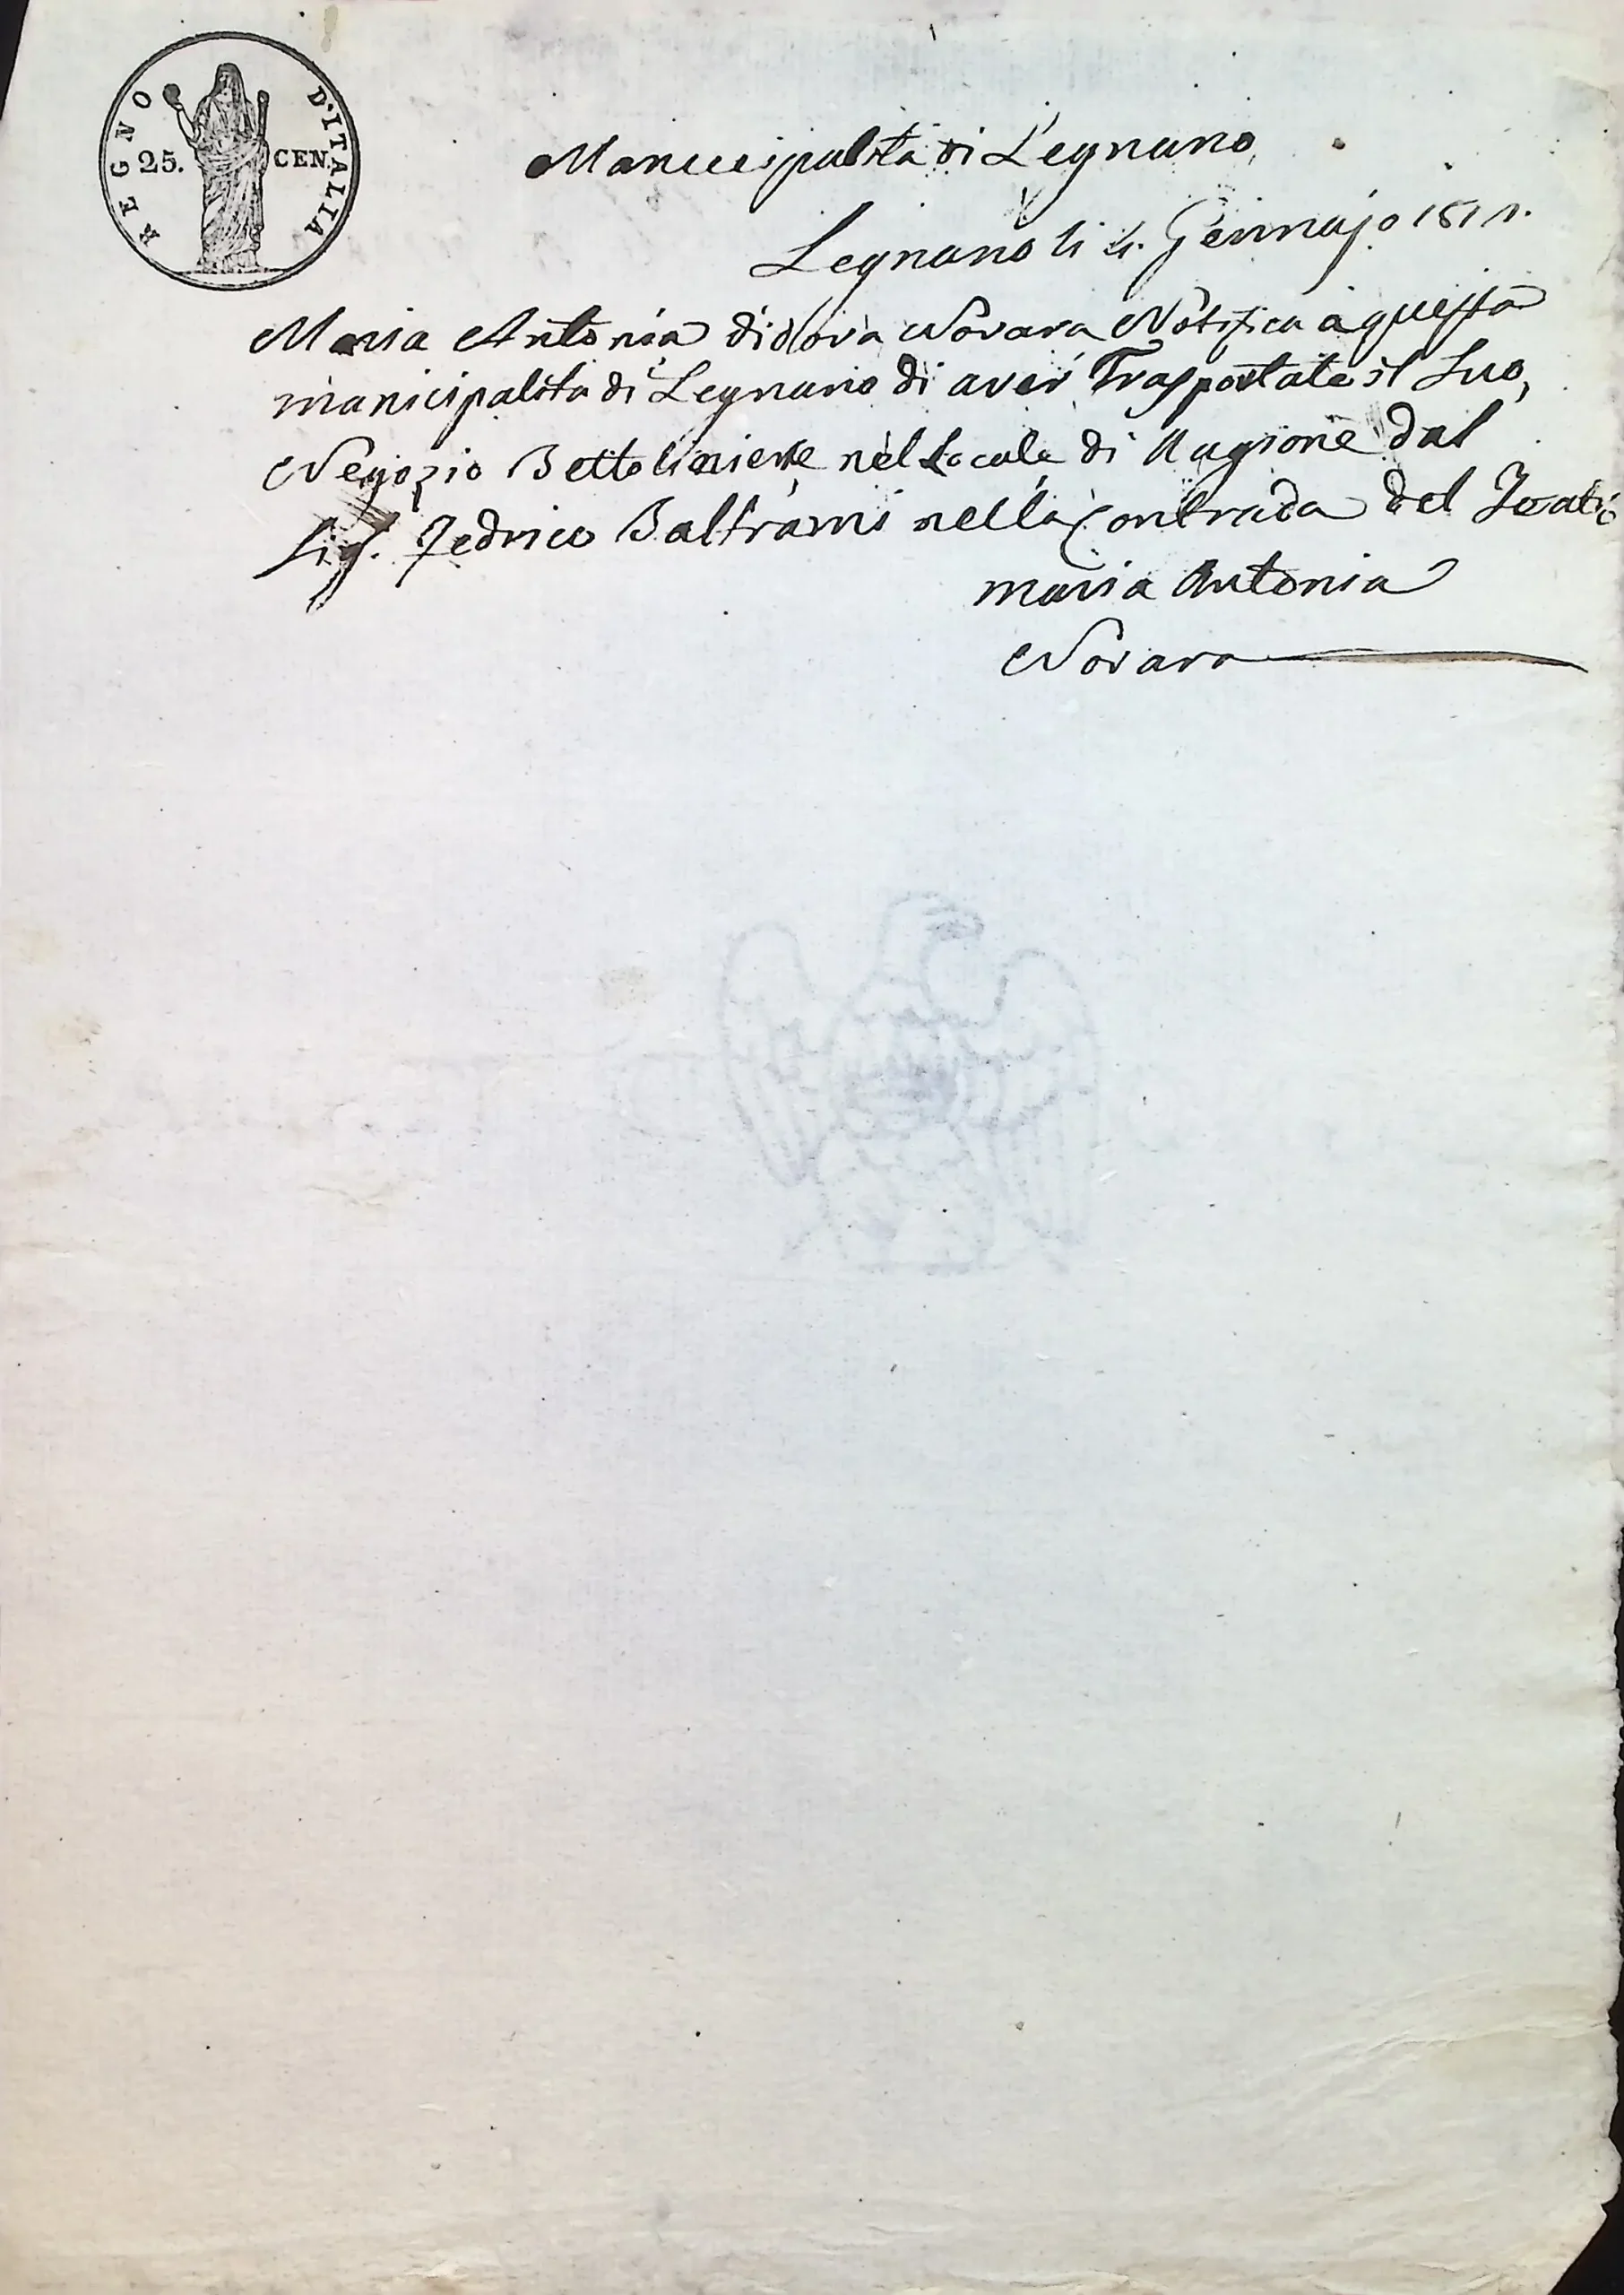 REGNO D'ITALIA
25. CEN.
Manicipalita di Legnano
Legnano li 4. Gennajo 1811.
Maria Antonia didova Novara Notifica a questa
manicipalita di Legnano di aver Trasportate il Suo,
Negozio Bettoliniere nel Locale di Ragione dal
Sig. Fedrico Baltrami nella Contrada del
maria Antonia
Novara